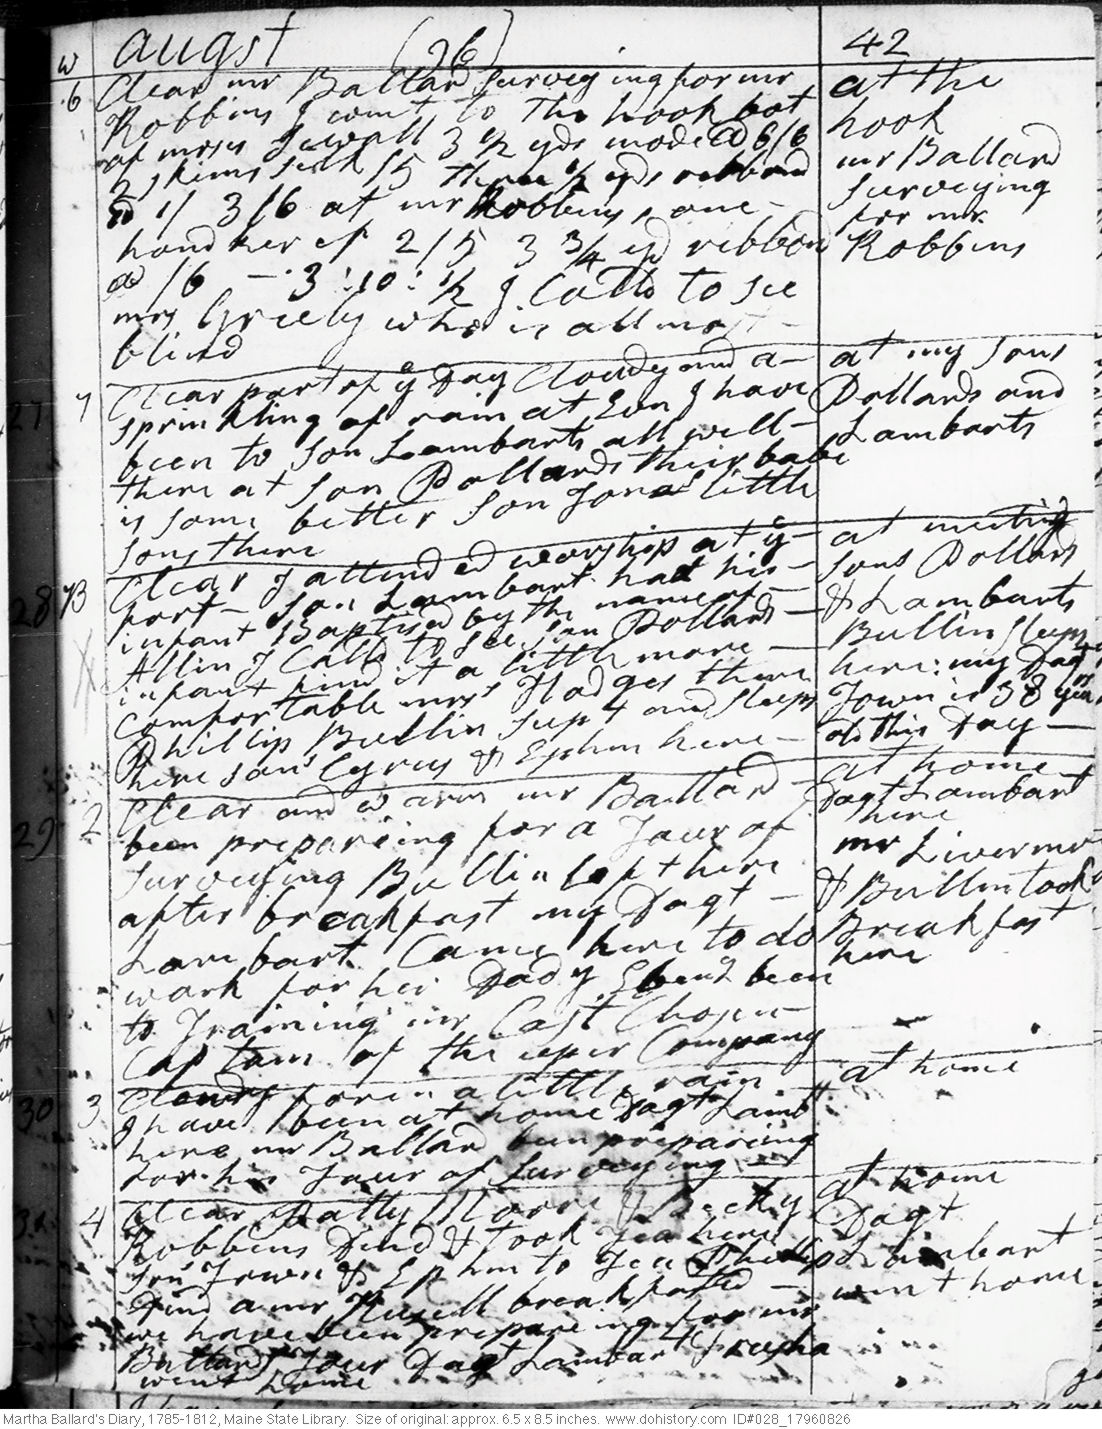 w augst (26) 42
6 Clear mr Ballard Surveying for mr
Robbins I went to the hook bot
of moses Sewall 3 1/2 yds mode @ 6/6
2 skeins silk /5 three 1/2 yds ribbond
@ 1/ 3/6 at mr Robbins, one -
hand ker cf 2/5 3 3/4 yd ribbon
@ /6 - 3:10:1/2 I Calld to see
mrs Greely who is allmost -
blind
at the
hook
mr Ballard
surveying
for mr
Robbins
27 7 Clear part of ye Day Cloudy and a -
sprinkling of rain at Evn I have
been to son Lambarts all well -
there at son Pollards their babe
is some better son Jona little
sons there
at my sons
Pollards and
Lambarts
28 B Clear I attended worship at ye -
port - son Lambart had his -
infant Baptised by the name of -
Allin I Calld to see son Pollards -
infant find it a little more -
Comfortable mrs Hodges there
Phillip Bullin supt and sleeps
here sons Cyrus & Ephm here -
at meeting
sons Pollard
& Lambarts
Bullin sleeps
here: my Dagt
Town is 38 years
old this Day -
29 2 Clear and warm mr Ballard
been prepareing for a Tour of
surveying Bullin left here
after breakfast my Dagt -
Lambart Came here to do
work for her Dady Ebenz been
to Training mr Cast Chosen
Captain of the uper Company
at home
Dagt Lambart
here
mr Livermor
& Bullin took
Breakfast
here
30 3 Cloudy foren a little rain
I have been at home Dagt Lambt
here mr Ballard been prepareing
for his Tour of surveying -
at home
31 4 Clear Patty Moore & Becky
Robbins Dind & took Tea here
son Town & Ephm to Tea Phillip
Dind a mr Russell breakfastd -
we have been prepareing for mr
Ballards Tour Dagt Lambart
went home
at home
Dagt
Lambart
went home
Martha Ballard's Diary, 1785-1812, Maine State Library. Size of original: approx. 6.5 x 8.5 inches. www.dohistory.com ID#028_17960826